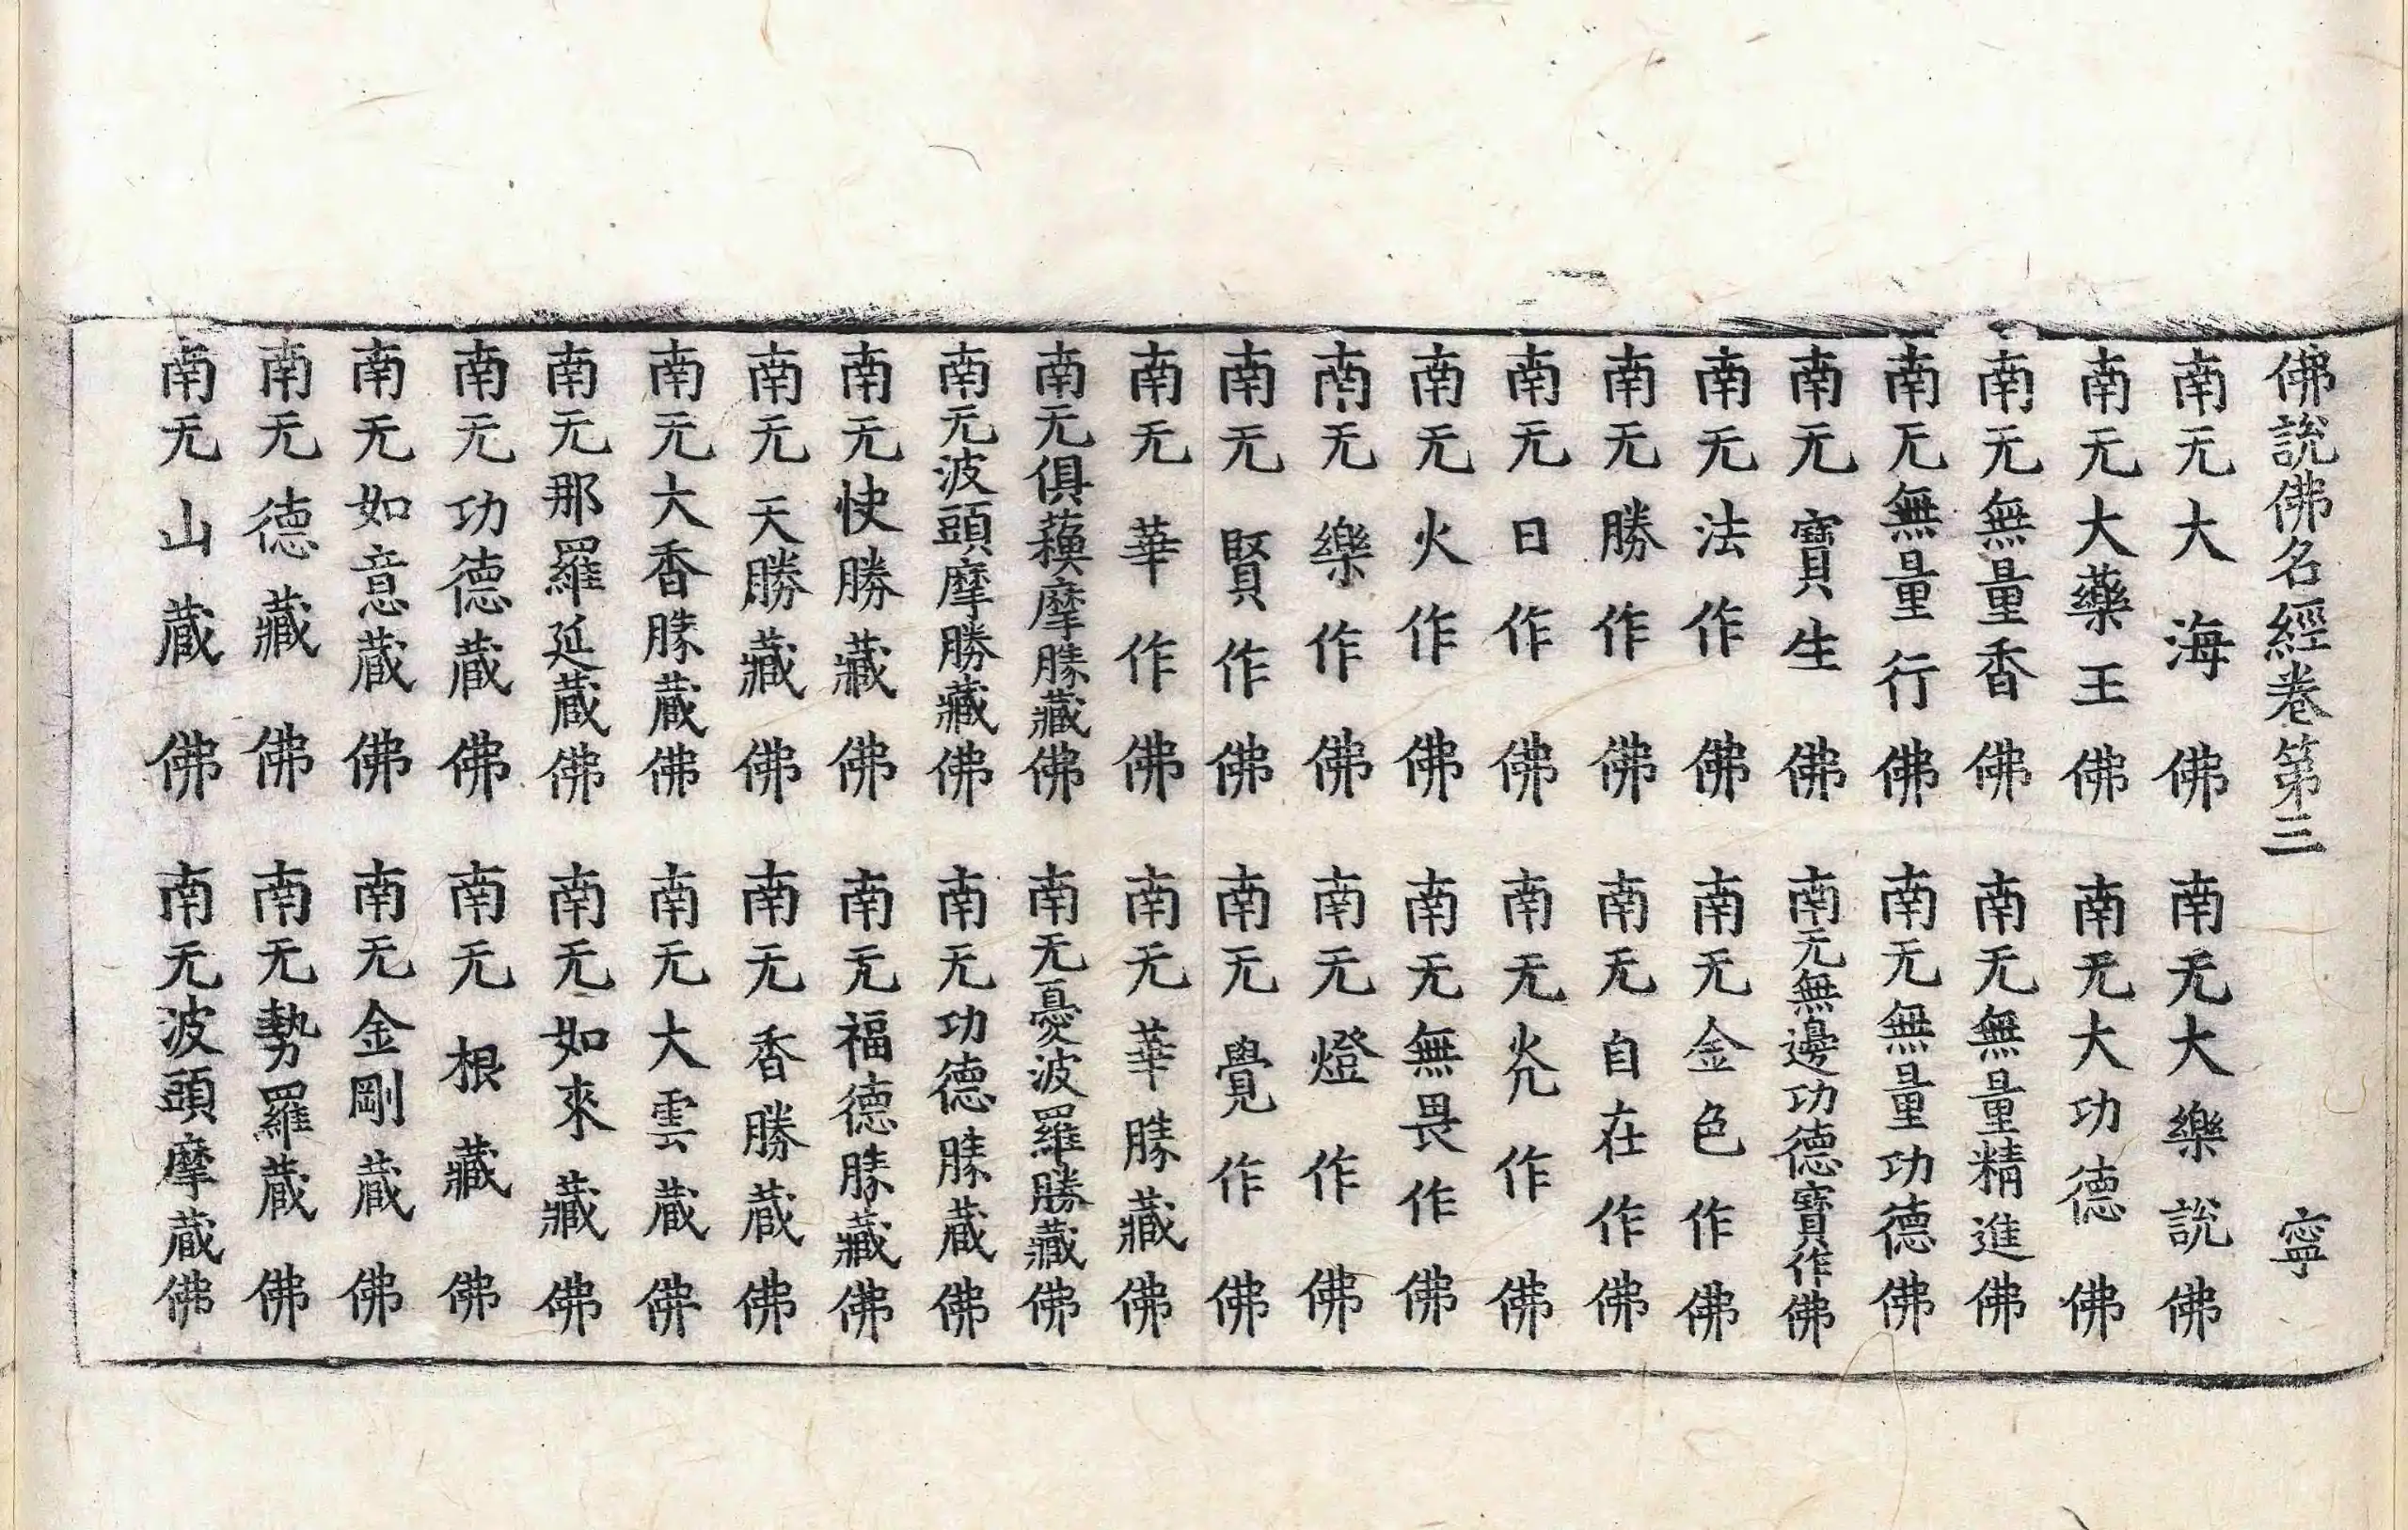 佛說佛名經卷第三 寧
南无大海佛 南无大樂說佛
南无大藥王佛 南无大功德佛
南无無量香佛 南无無量精進佛
南无無量行佛 南无無量功德佛
南无寶生佛 南无無邊功德寶作佛
南无法作佛 南无金色作佛
南无勝作佛 南无自在作佛
南无日作佛 南无光作佛
南无火作佛 南无無畏作佛
南无樂作佛 南无燈作佛
南无賢作佛 南无覺作佛
南无華作佛 南无華勝藏佛
南无俱蘓摩勝藏佛 南无憂波羅勝藏佛
南无波頭摩勝藏佛 南无功德勝藏佛
南无快勝藏佛 南无福德勝藏佛
南无天勝藏佛 南无香勝藏佛
南无大香勝藏佛 南无大雲藏佛
南无那羅延藏佛 南无如來藏佛
南无功德藏佛 南无根藏佛
南无如意藏佛 南无金剛藏佛
南无德藏佛 南无勢羅藏佛
南无山藏佛 南无波頭摩藏佛